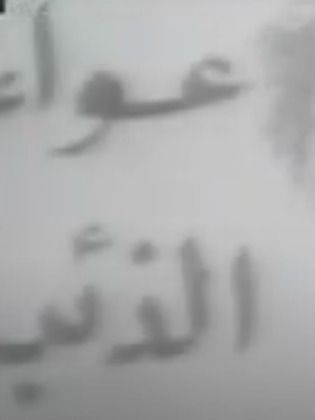 عواء
الذئب